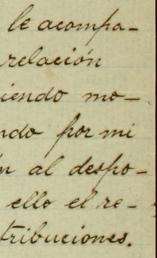 le acompa-
relación
iendo mo-
ndo por mi
n al despo-
ello el re-
tribuciones.